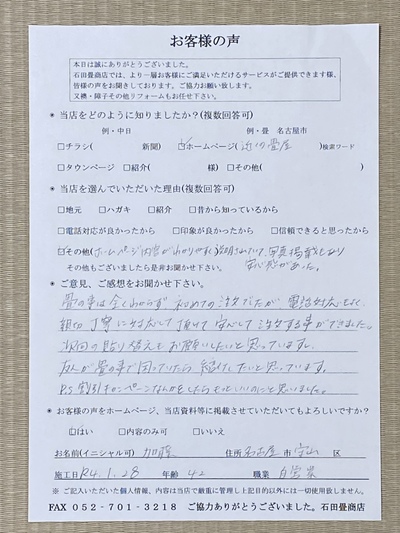 お客様の声
本日は誠にありがとうございました。
石田畳商店では、より一層お客様にご満足いただけるサービスがご提供できます様、
皆様の声をお聞きしております。ご協力お願い致します。
又襖・障子その他リフォームもお任せ下さい。
* 当店をどのように知りましたか?(複数回答可)
例・中日 例・畳 名古屋市
□チラシ( 新聞) ☑ホームページ(近くの畳屋)検索ワード
□タウンページ □紹介( 様) □その他( )
* 当店を選んでいただいた理由(複数回答可)
□地元 □ハガキ □紹介 □昔から知っているから
□電話対応が良かったから □印象が良かったから □信頼できると思ったから
☑その他(ホームページ内容がわかりやすく説明されていて、写真掲載もあり
その他もございましたら是非お聞かせ下さい。 安心感があった。
* ご意見、ご感想をお聞かせ下さい。
畳の事は全くわからず初めての注文でしたが、電話対応もよく、
親切、丁寧に対応して頂けて安心して注文する事ができました。
次回の貼り替えもお願いしたいと思っています。
友人が畳の事で困っていたら紹介したいと思っています。
P.S 割引キャンペーンなんかをしたらもっといいのにと思いました。
* お客様の声をホームページ、当店資料等に掲載させていただいてもよろしいですか?
☑はい □内容のみ可 □いいえ
お名前(イニシャル可) 加藤 住所 名古屋 市 守山 区
施工日 R4.1.28 年齢 42 職業 自営業
※ ご記入いただいた個人情報、内容は当店で厳重に管理し上記目的以外には一切使用致しません。
FAX 052-701-3218 ご協力ありがとうございました。石田畳商店